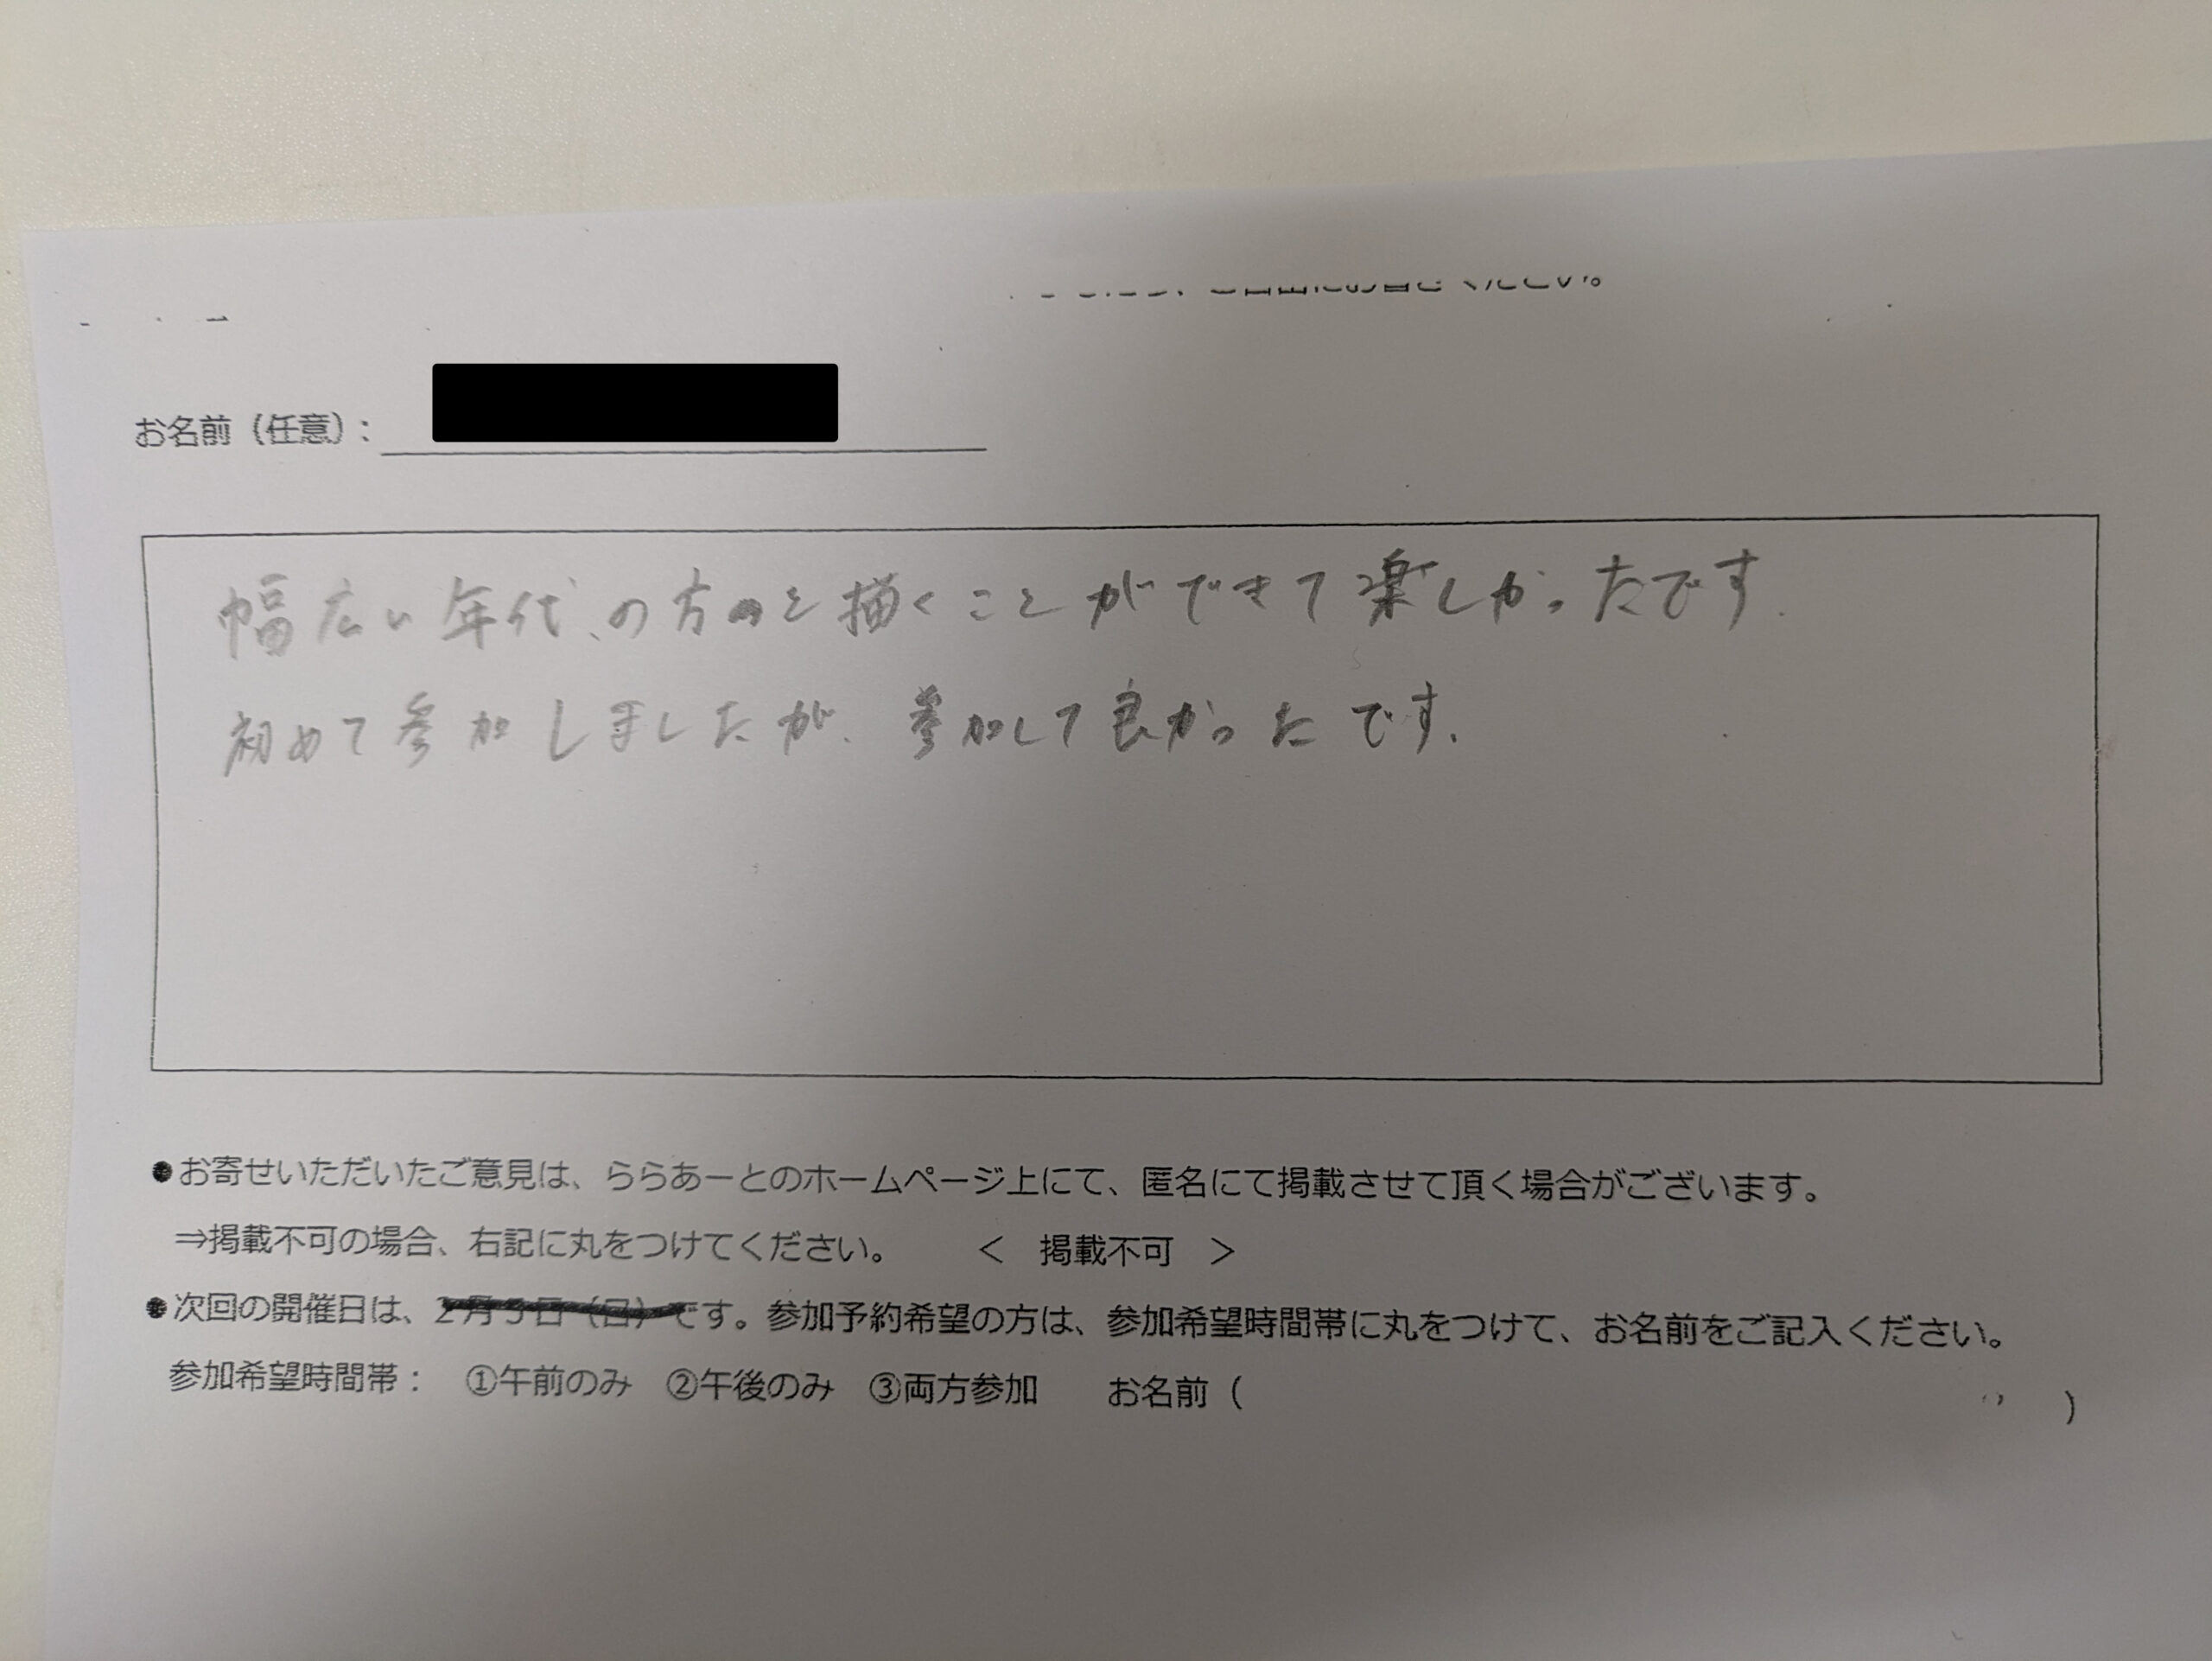 お名前（任意）：
幅広い年代の方のを描くことができて楽しかったです.
初めて参加しましたが、参加して良かったです.
●お寄せいただいたご意見は、ららあーとのホームページ上にて、匿名にて掲載させて頂く場合がございます。
⇒掲載不可の場合、右記に丸をつけてください。　＜　掲載不可　＞
●次回の開催日は、です。参加予約希望の方は、参加希望時間帯に丸をつけて、お名前をご記入ください。
参加希望時間帯：　①午前のみ　②午後のみ　③両方参加　お名前（　）